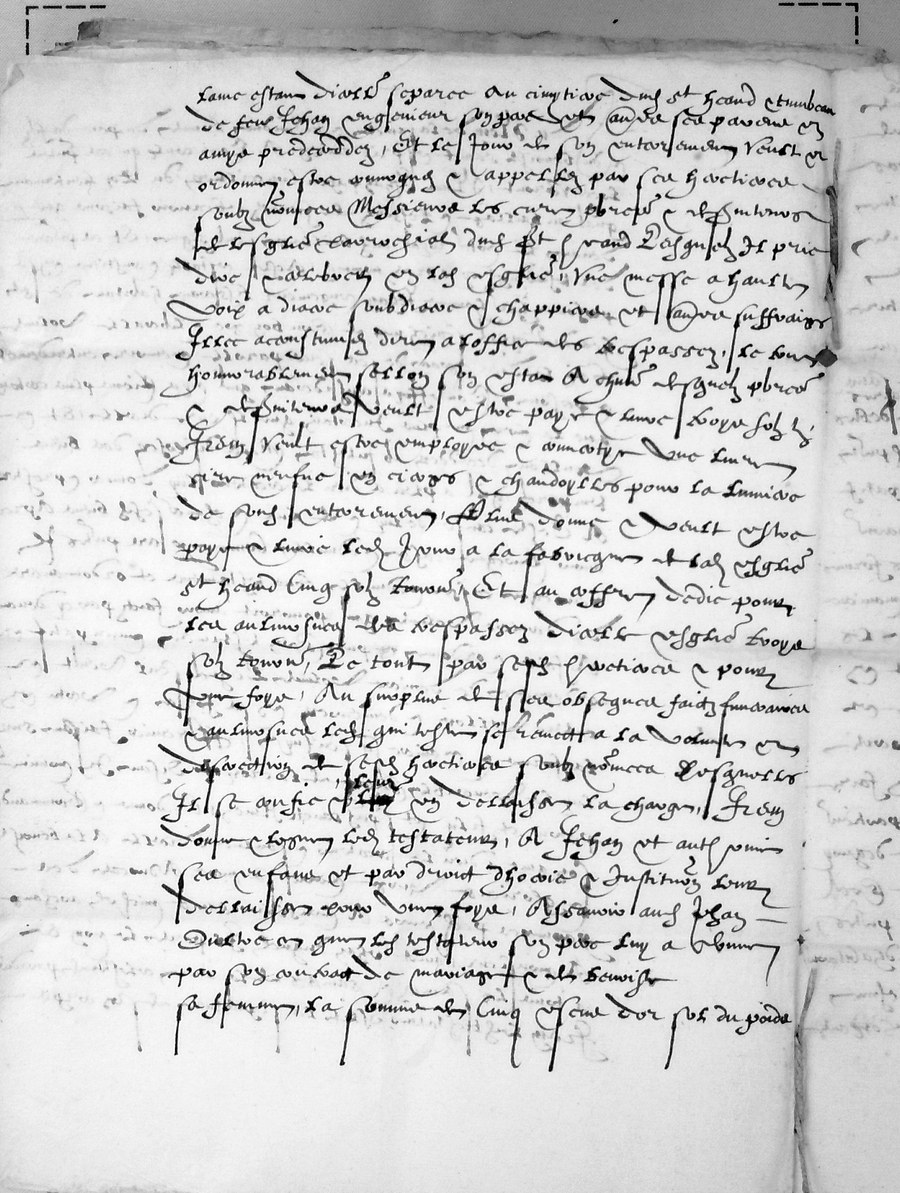 lame estant dicelle separee au cimytiere dud st heand & tumbeau
de feu Jehan engenieur son pere et aultres ses parens &
amys predecedez, Et le Jour de son enterrement veult &
ordonne estre convoquez & appellez par ses heretiers
soubz nommez Messieurs les curé pbres &
de lesglise parrochialle dud st heand Lesquelz Il prie
dire & celebrer en lad esglise, une messe a haulte
voix a diacre soubdiacre & chappiers et aultres suffraiges
Illec acoustumez dire a loffice des trespassez, le tout
honnorablement sellon son estat A chun desquelz pbres
& veult estre payé & livré troys solz tz
Item veult estre employee & convertye une livre
cire neufve en cierges & chandoylles pour la lumiere
de sond enterrement, Plus donne & veult estre
payé & livré led Jour a la fabricque de lad esglise
st heand Cinq solz tournois, Et au coffre dédié pour
les aulmosnes des trespassez dicelle esglise troys
solz tournois, Le tout par sesd heretiers & pour
une foys, Au surplus de ses obseques faictz funeraires
& aulmosnes led testateur se remect a la volunté &
discrection de sesd heretiers soubz nommez Desquelz
Il se confie & leur en dellaisse la charge, Item
donne & legue led testateur, A Jehan et anth
ses enfans et par droict dhoirie & Institution leur
dellaisse pour une foys, Assavoir aud Jehan
Oultre ce que led testateur son pere luy a donné
par son contract de mariage & de benoiste
sa femme, la somme de Cinq escus dor sol du poids